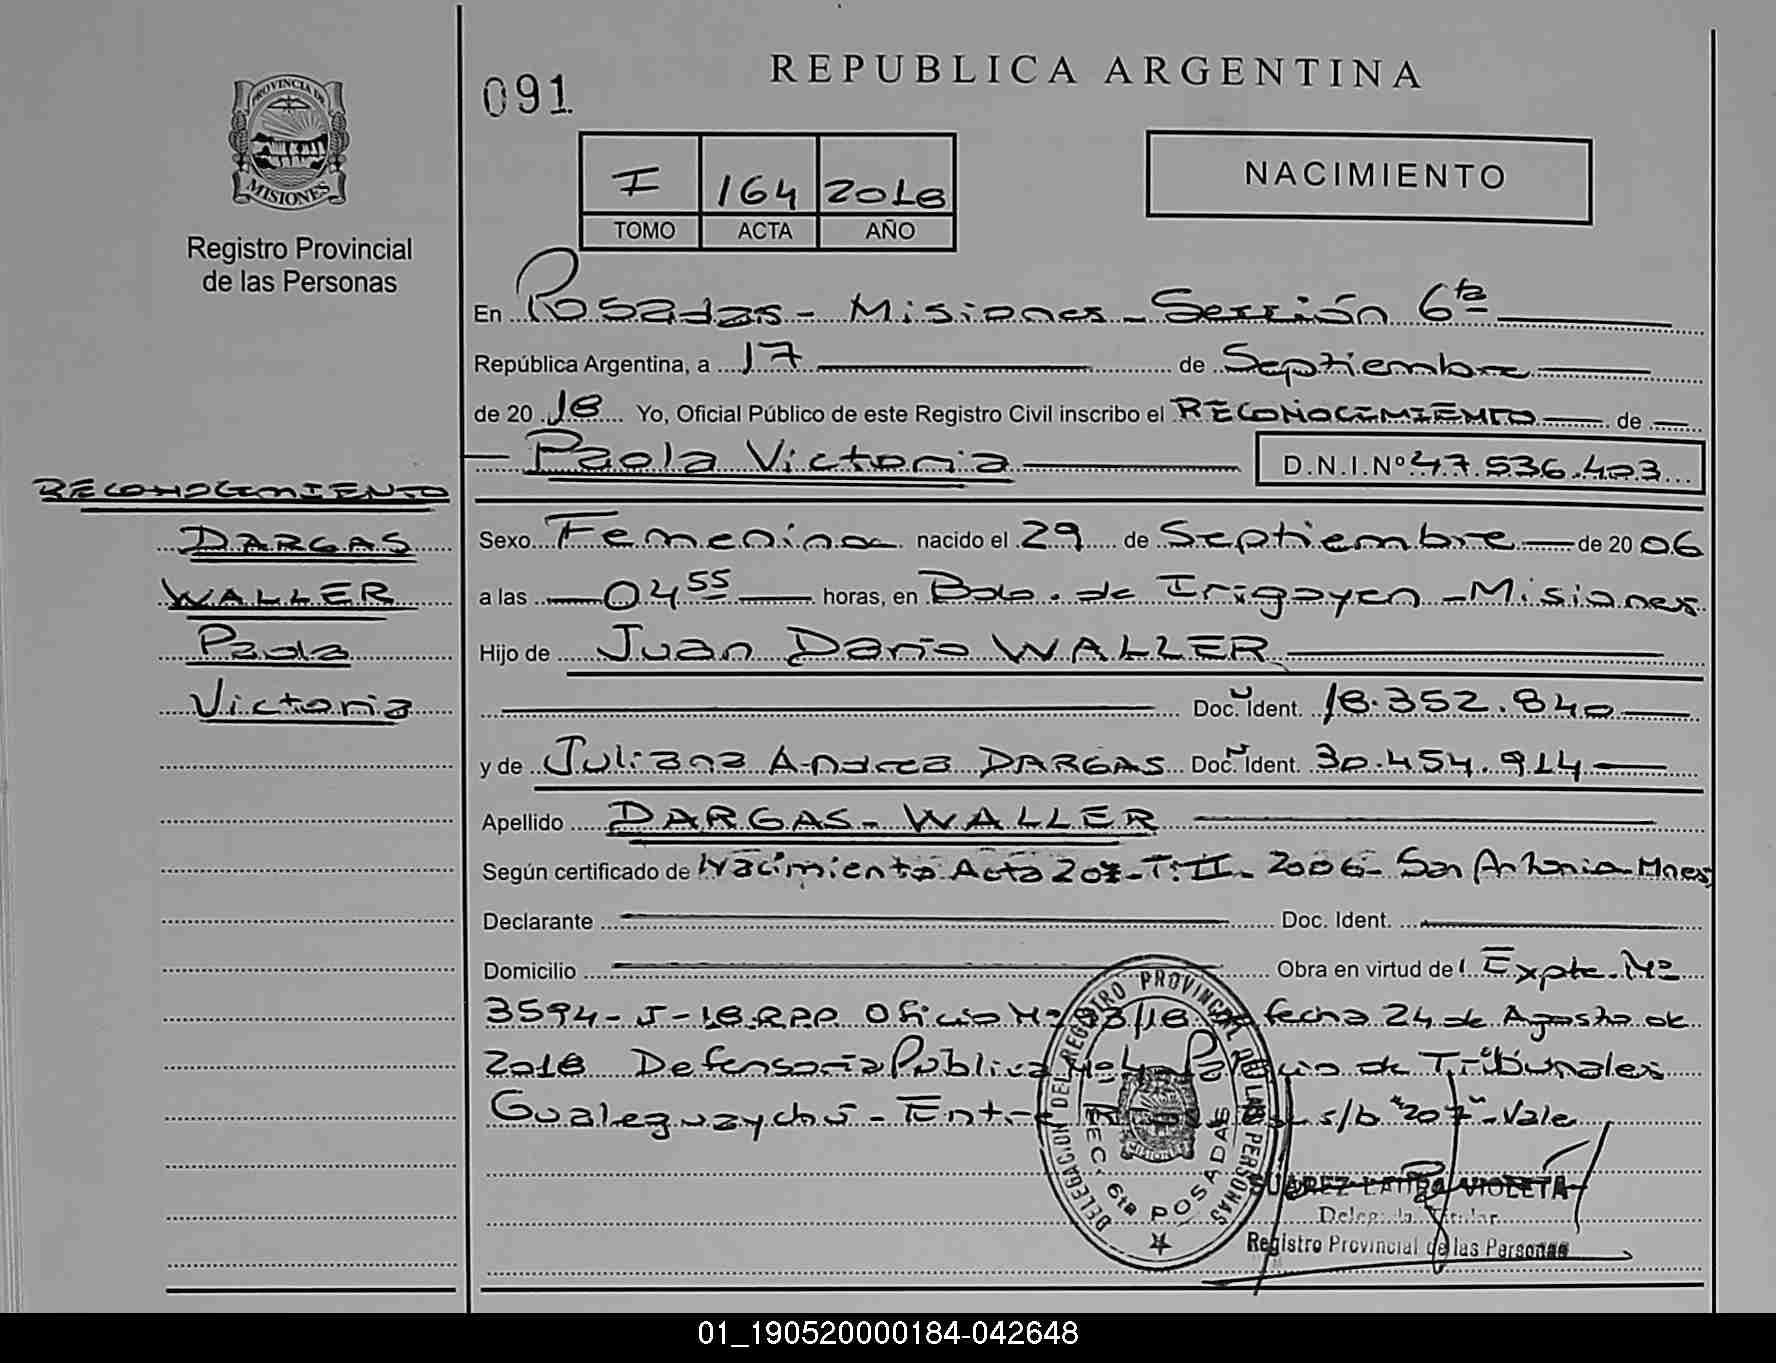 PROVINCIA DE
MISIONES
Registro Provincial
de las Personas
RECONOCIMIENTO
DARGAS
WALLER
Paola
Victoria
REPUBLICA ARGENTINA
091
NACIMIENTO
I 164 2018
TOMO ACTA AÑO
En Posadas - Misiones - Sección 6ta
República Argentina, a 17 de Septiembre
de 2018 Yo, Oficial Público de este Registro Civil inscribo el RECONOCIMIENTO de
Paola Victoria D.N.I.Nº 47.536.423
Sexo Femenino nacido el 29 de Septiembre de 2006
a las 04 55 horas, en Bdo. de Irigoyen - Misiones
Hijo de Juan Dario WALLER
Doc. Ident. 18.352.840
y de Juliana Andrea DARGAS Doc. Ident. 30.454.914
Apellido DARGAS - WALLER
Según certificado de Nacimiento Acta 207 - T: II - 2006 - San Antonio - Mnes
Declarante Doc. Ident.
Domicilio Obra en virtud del Expte. Nº
3594 - J - 18. R.P.P. Oficio Nº /18 de fecha 24 de Agosto de
2018 Defensoría Pública Nº 4 - de Tribunales
Gualeguaychú - Entre s/b "207" - Vale
DELEGACION DEL REGISTRO PROVINCIAL DE LAS PERSONAS
SEC. 6ta POSADAS
MISIONES
SUAREZ LAURA VIOLETA
Delegada Titular
Registro Provincial de las Personas
01_190520000184-042648